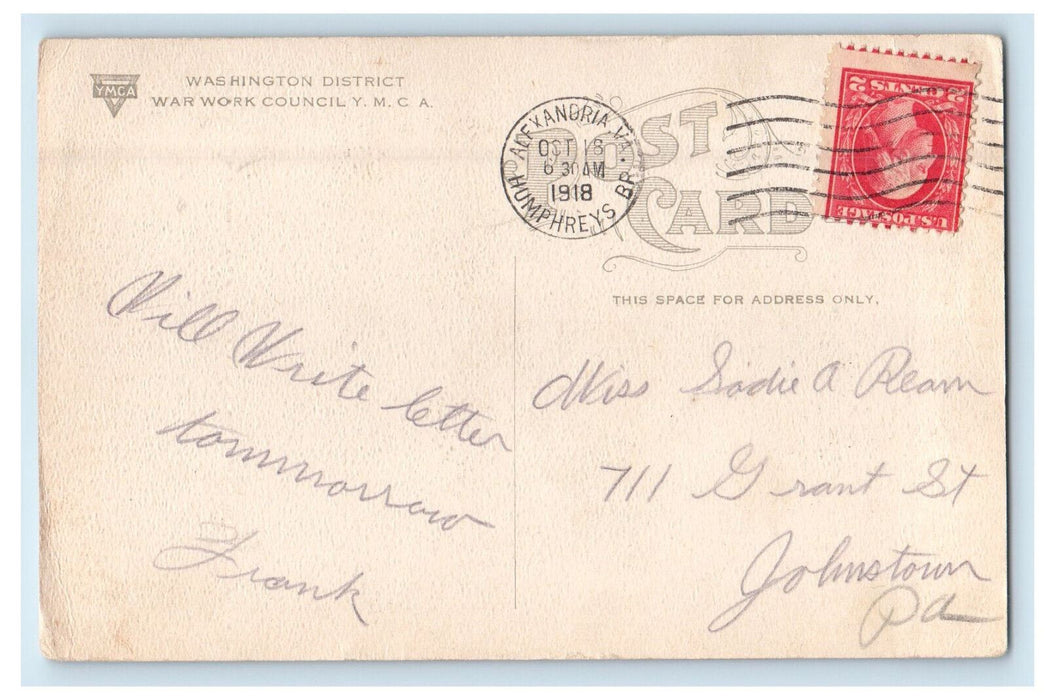 YMCA
WASHINGTON DISTRICT
WAR WORK COUNCIL Y. M. C. A.
POST CARD
ALEXANDRIA, VA.
OCT 16
6 30AM
1918
HUMPHREYS BR.
U.S. POSTAGE
2 CENTS 2
THIS SPACE FOR ADDRESS ONLY.
Will Write letter
tommorrow
Frank
Miss Sadie A Ream
711 Grant St
Johnstown
Pa